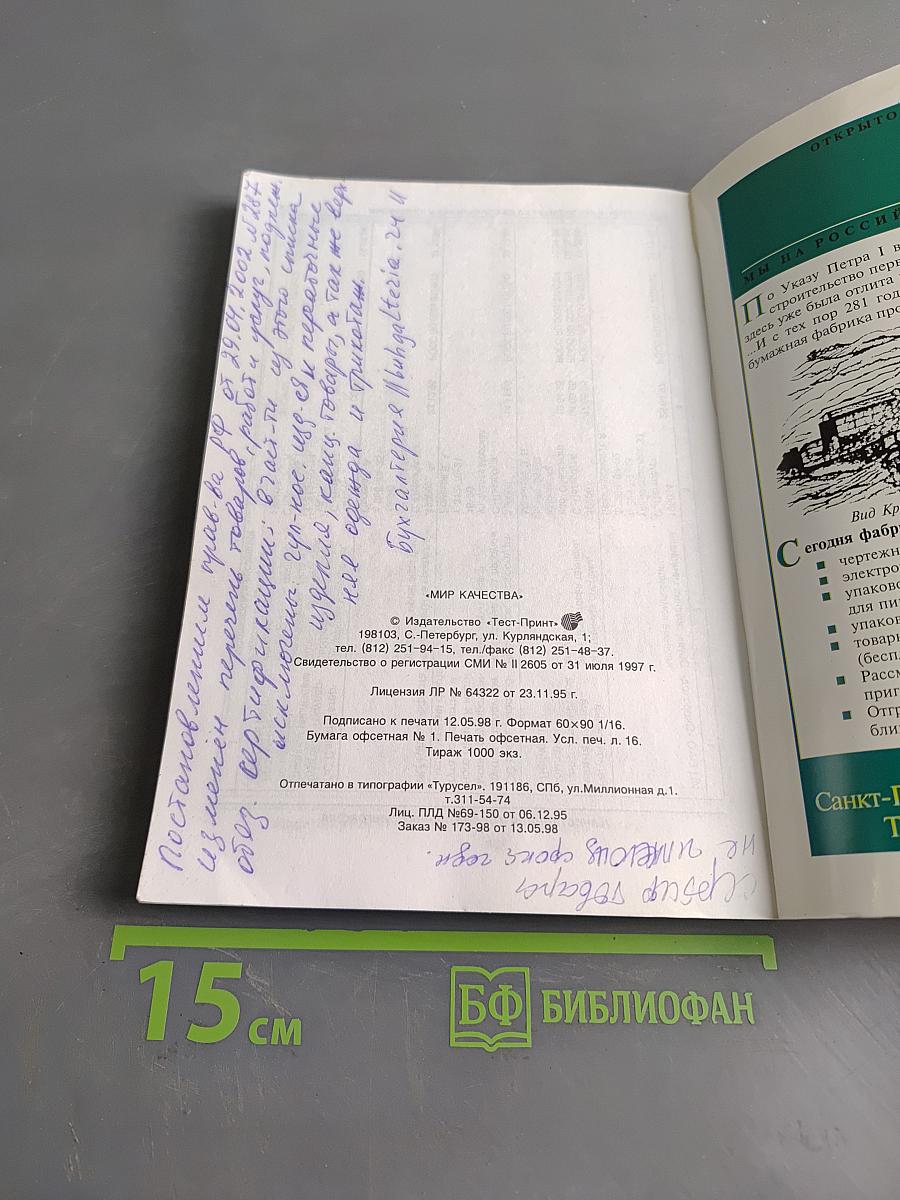 Постановлением прав-ва РФ от 29.04.2002 № 287
изменён перечень товаров, работ и услуг, подлеж.
обяз. сертификации: в част-ти из этого списка
исключены:
изделия, канц. товары, а так же верх-
няя одежда и трикотаж.
Бухгалтерия // buhgalteria.
«МИР КАЧЕСТВА»
© Издательство «Тест-Принт»
198103, С.-Петербург, ул. Курляндская, 1;
тел. (812) 251-94-15, тел./факс (812) 251-48-37.
Свидетельство о регистрации СМИ № П 2605 от 31 июля 1997 г.
Лицензия ЛР № 64322 от 23.11.95 г.
Подписано к печати 12.05.98 г. Формат 60×90 1/16.
Бумага офсетная № 1. Печать офсетная. Усл. печ. л. 16.
Тираж 1000 экз.
Отпечатано в типографии «Турусел». 191186, СПб, ул.Миллионная д.1.
т.311-54-74
Лиц. ПЛД №69-150 от 06.12.95
Заказ № 173-98 от 13.05.98
товара
не срока годн.
ОТКРЫТО
МЫ НА РОССИЙ
По Указу Петра I в
строительство перв
здесь уже была отлита
...И с тех пор 281 год
бумажная фабрика про
Вид Кр
Сегодня фабри
чертежн
электро
упаково
для пи
упаков
товарн
(беспл
Рассм
приг
Отгр
бли
Санкт-П
Т
15 см
БФ БИБЛИОФАН